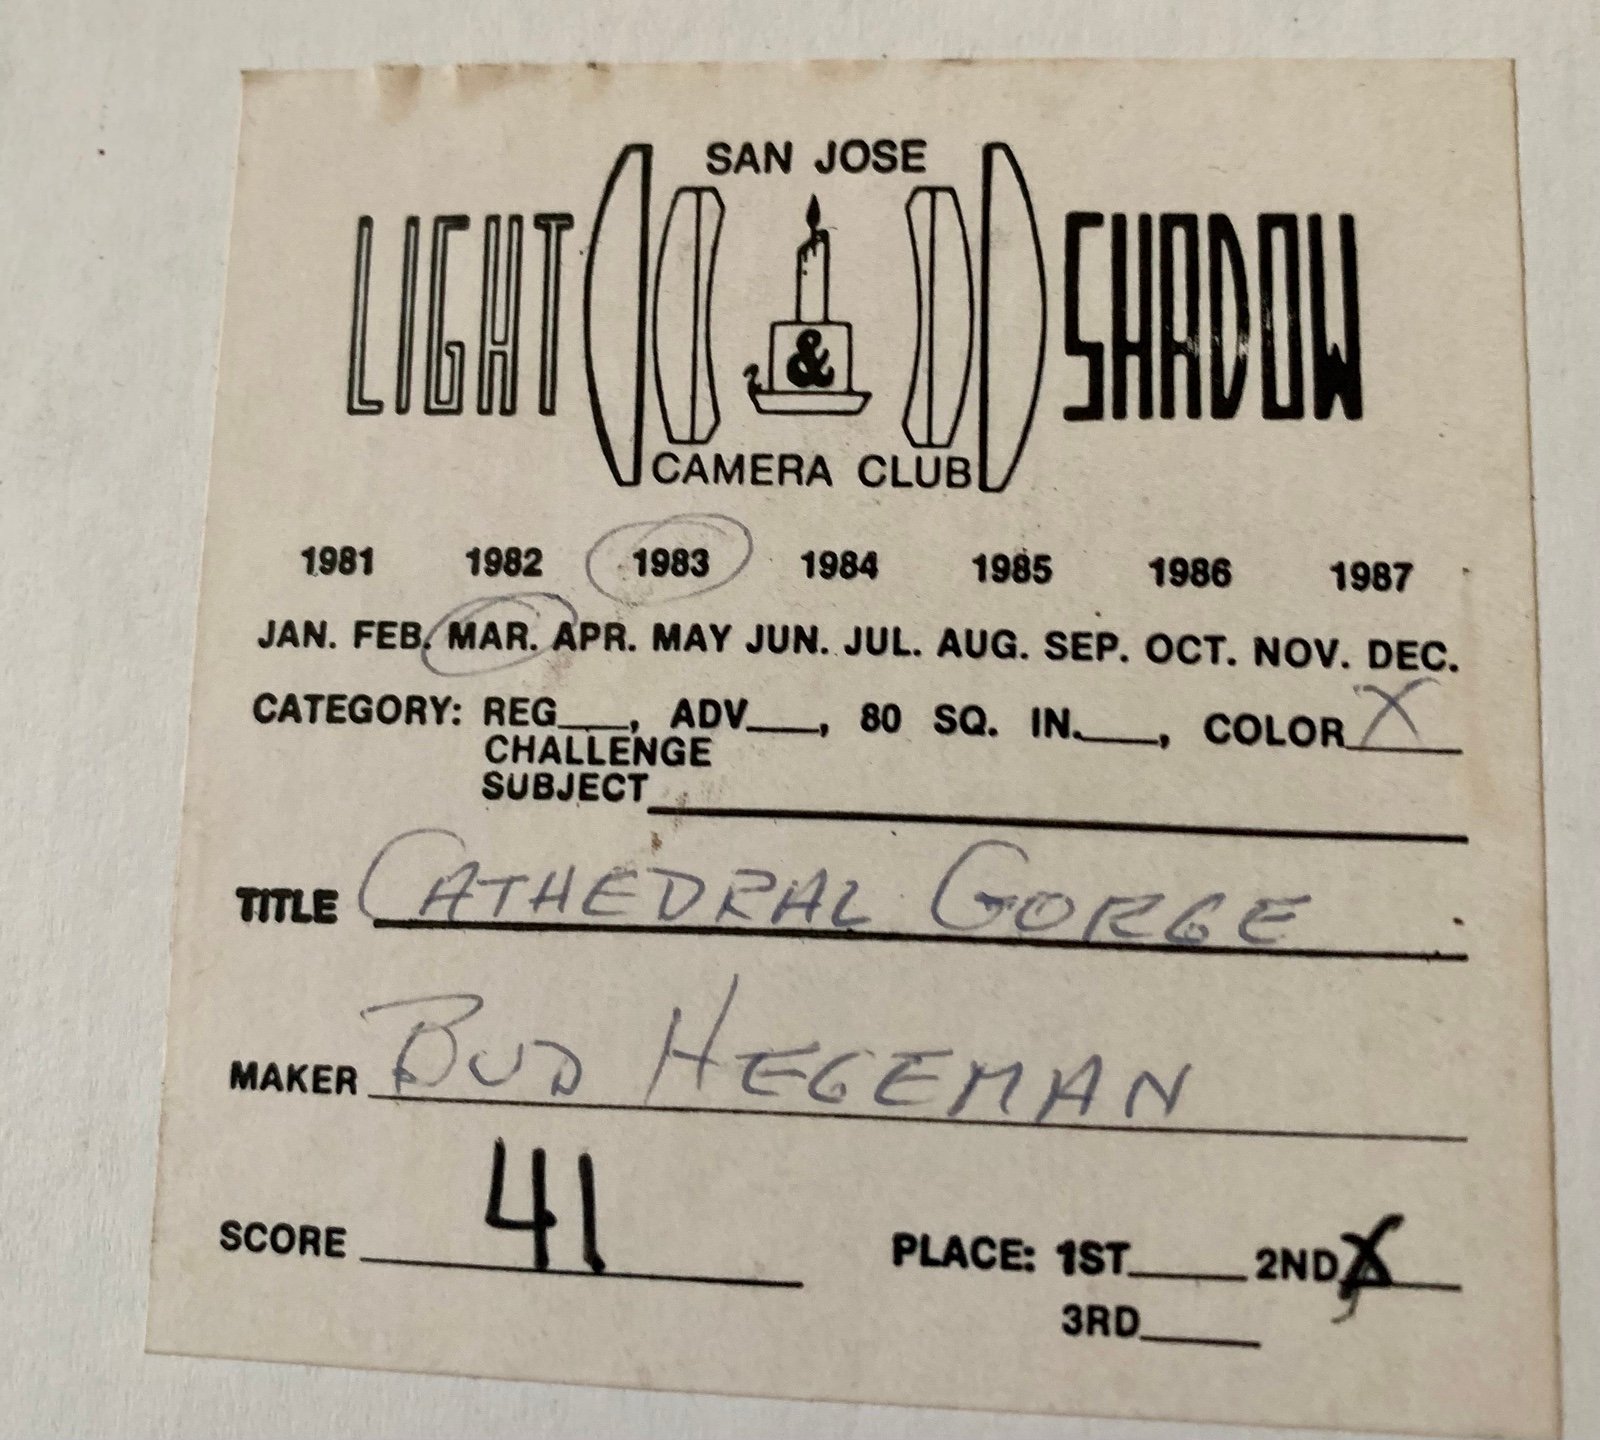 SAN JOSE
LIGHT & SHADOW
CAMERA CLUB
1981 1982 1983 1984 1985 1986 1987
JAN. FEB. MAR. APR. MAY JUN. JUL. AUG. SEP. OCT. NOV. DEC.
CATEGORY: REG___, ADV___, 80 SQ. IN.___, COLOR X
CHALLENGE
SUBJECT
TITLE CATHEDRAL GORGE
MAKER BUD HEGEMAN
SCORE 41 PLACE: 1ST____ 2ND X
3RD____